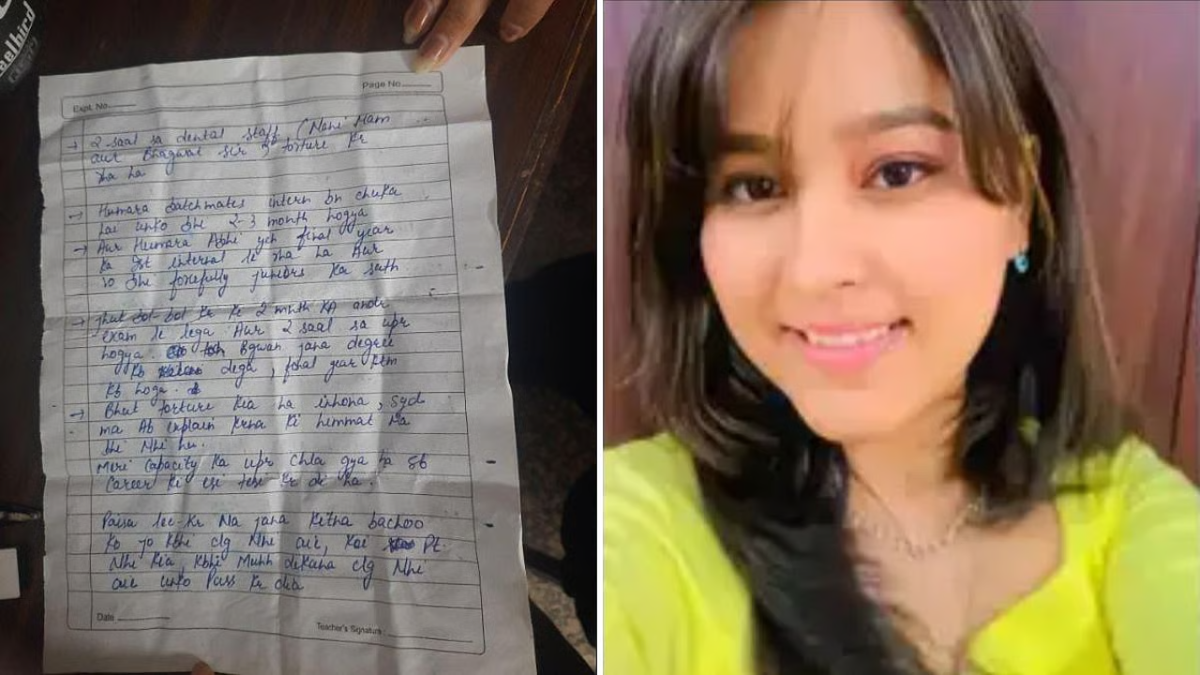 aelbird
Expt. No.
Page No.
→ 2 saal sa dental staff, (Mam
aur Bhagwat sir) torture kr
rha ha
→ Humara batchmates intern bn chuka
hai unko bhi 2-3 month hogya
→ Aur Humara Abhi yeh final year
ka Ist internal le rha ha Aur
vo bhi forcefully juniors ka sath
→ jhut bol-bol kr ke 2 month KA andr
exam le lega. Aur 2 saal sa upr
hogya. Bgwan jana degree
kb dega, final year khtm
kb hoga.
→ Bhut torture kia ha inhona, syd
ma Ab explain krna ki himmat na
bhi Nhi hu.
Meri Capacity ka upr chla gya ha sb
Career ki esi tesi kr di ha.
Paisa lee-kr Na jana kitna bachoo
ko jo kbhi clg Nhi aie, koi Pt.
Nhi kia, kbhi Muhh dikana clg Nhi
aie unko Pass kr dia
Date
Teacher's Signature :